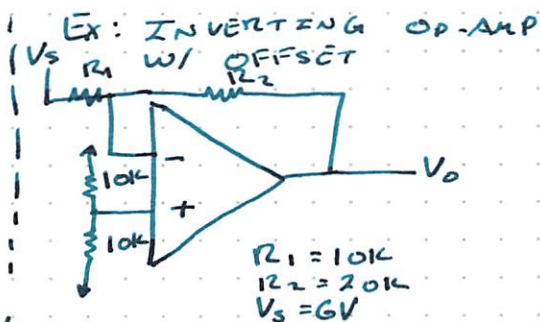 Ex: INVERTING OP-AMP
W/ OFFSET
Vs
R1
R2
10K
-
+
10K
Vo
R1 = 10K
R2 = 20K
Vs = 6V